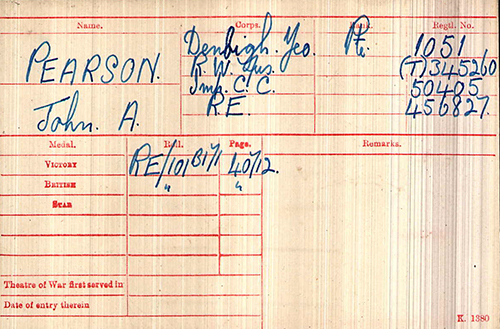 Name. Corps. Rank. Regtl. No.
PEARSON. Denbigh. Yeo. Pte. 1051
R. W. Fus. (T) 345260
Imp. C. C. 50405
John. A. R.E. 456827.
Medal. Roll. Page. Remarks.
VICTORY RE/101B171 40712.
BRITISH " "
STAR
Theatre of War first served in
Date of entry therein
K. 1380